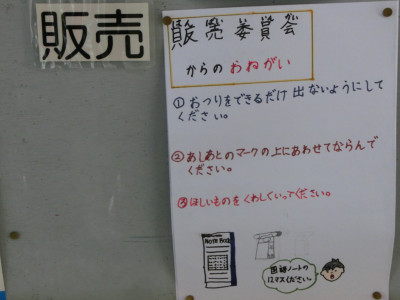 販売
はん ばい い いん かい
販売委員会
からの おねがい
①おつりをできるだけ出ないようにして
ください。
②あしあとのマークの上にあわせてならんで
ください。
③ほしいものをくわしくいってください。
Note Book
国語ノートの
12マスください。